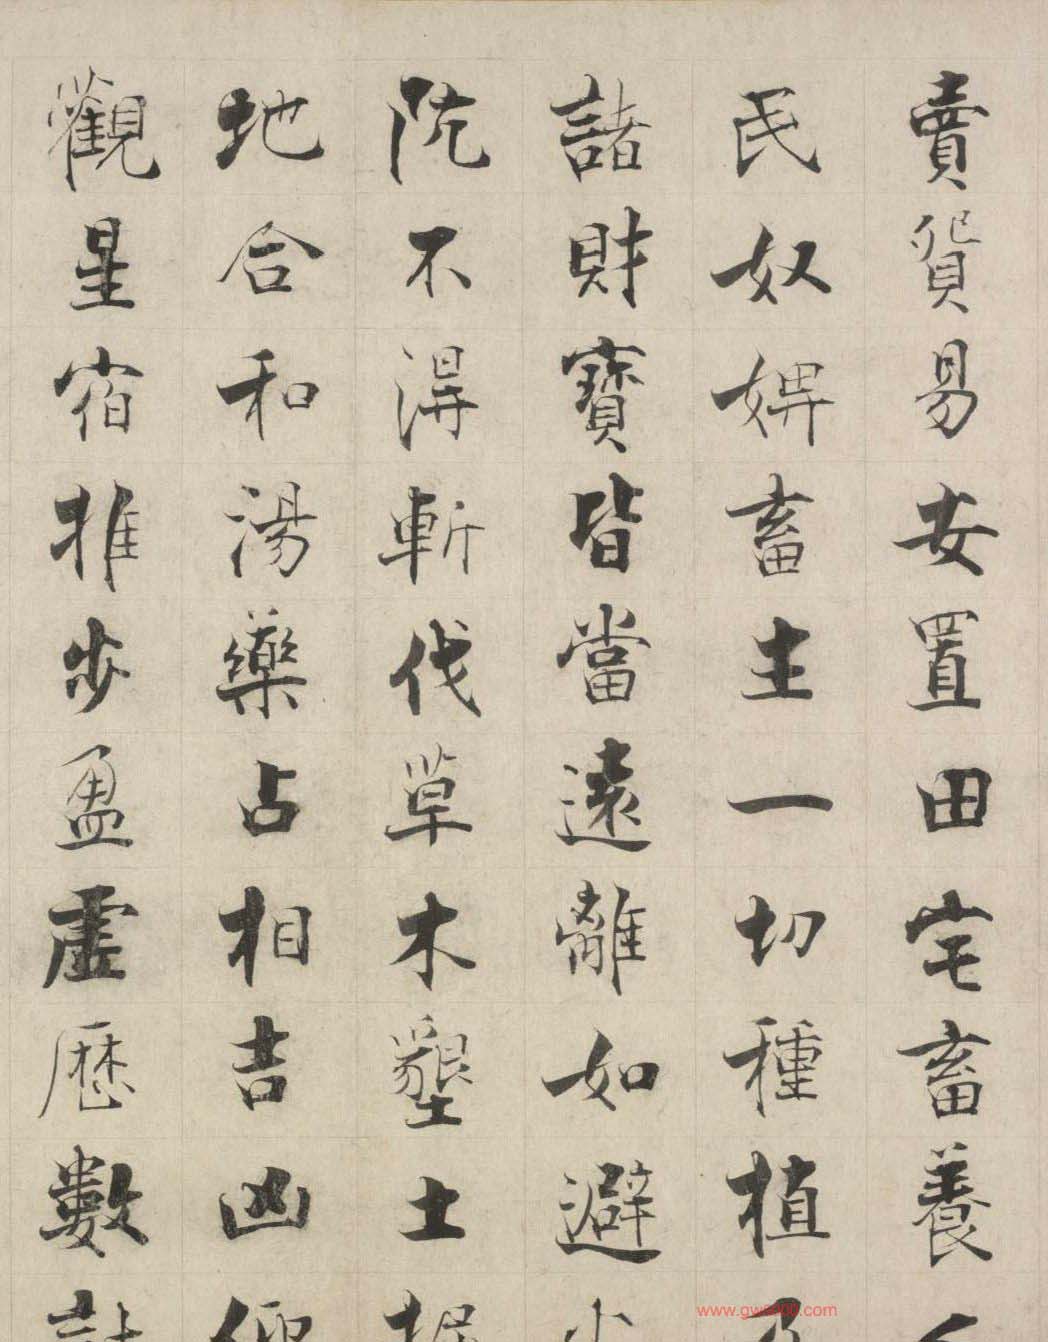 賣貿易安置田宅畜養
民奴婢畜生一切種植
諸財寶皆當遠離如避
阬不得斬伐草木墾土
地合和湯藥占相吉凶
觀星宿推步盈虛曆數